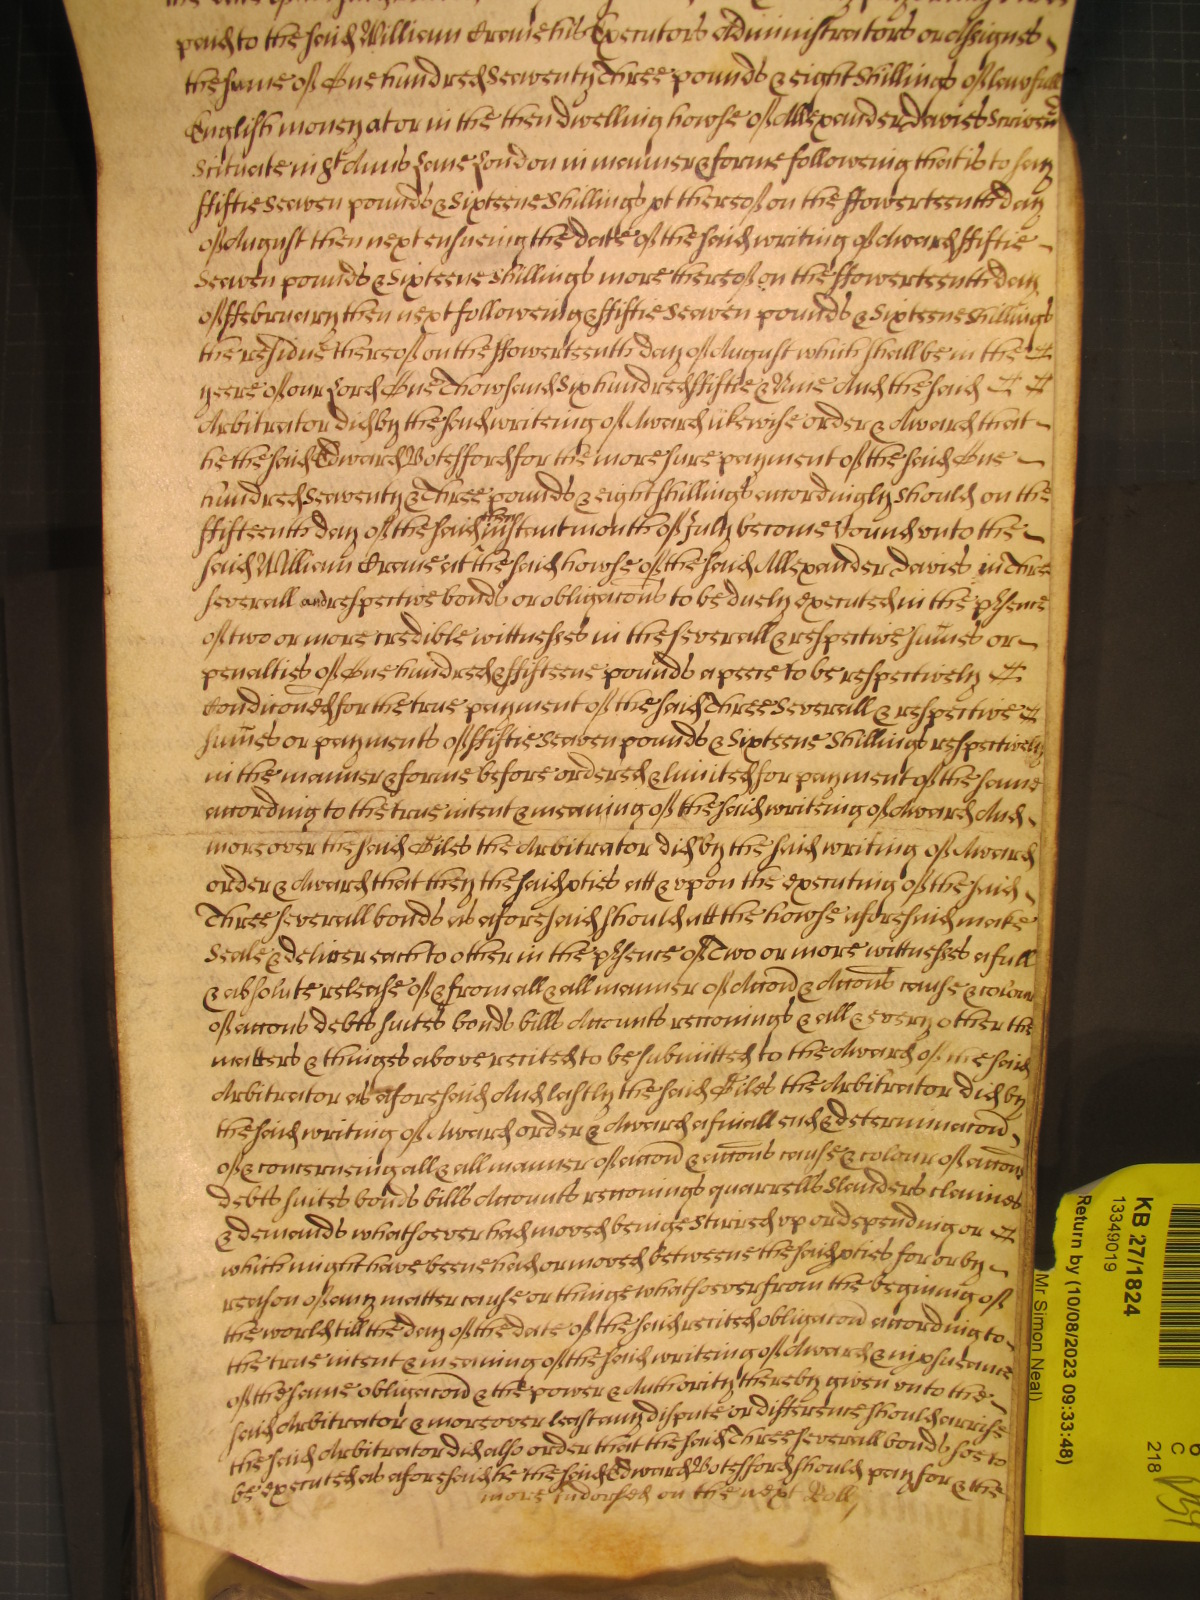 paid to the said William Crane his Executors Administrators or Assignes
the sume of One hundred Seaventy Three pounds & eight Shillings of lawfull
English money at or in the then dwelling howse of Allexander Davies Scriven
Scituate in St Anns Lane London in manner & forme followeing that is to say
ffiftie Seaven pounds & Sixteene Shillings pt thereof on the ffowerteenth day
of August then next ensueing the date of the said writing of Award ffiftie
Seaven pounds & Sixteene Shillings more thereof on the ffowerteenth day
of ffebruary then next followeing & ffiftie Seaven pounds & Sixteene Shillings
the residue thereof on the ffowerteenth day of August which shall be in the
yeere of our Lord One Thowsand Six hundred ffiftie & Nine And the said
Arbitrator did by the said writeing of Award likewise order & Award that
he the said Edward Botesford for the more sure payment of the said One
hundred Seaventy & Three pounds & eight shillings accordingly Should on the
ffifteenth day of the said then instant month of July become bound unto the
said William Crane at the said howse of the said Allexander Davies in Three
severall and respective bonds or obligacons to be duely executed in the psence
of two or more credible wittnesses in the severall & respective sumes or
penalties of One hundred & ffifteene pounds a peece to be respectively
Condiconed for the true payment of the said Three Severall & respective
sumes or payments of ffiftie Seaven pounds & Sixteene Shillings respectively
in the manner & forme before ordered & limited for payment of the same
according to the true intent & meaning of the said writeing of Award And
moreover the said Giles the Arbitrator did by the said writing of Award
order & Award that they the said pties att & upon the executing of the said
Three severall bonds as aforesaid should att the howse aforesaid make
Seale & deliver each to other in the psence of Two or more wittnesses a full
& absolute release of & from all & all manner of Accon & Accons cause & colour
of accons debts suites bonds bills Accounts reconings & all & every other the
matters & thinges above recited to be submitted to the Award of the said
Arbitrator as aforesaid And lastly the said Giles the Arbitrator did by
the said writing of Award order & Award a finall end & determinacon
of & concerneing all & all manner of accon & accons cause & colour of accons
debts suites bonds bills Accounts reconings quarrells Slanders claimes
& demands whatsoever had moved beinge Stirred up or depending or
which might have beene had or moved betweene the said pties for or by
reason of any matter cause or thinge whatsoever from the begining of
the world till the day of the date of the said recited obligacon according to
the true intent & meaning of the said writeing of Award & in psuance
of the same obligacon & the power & Authority thereby given unto the
said Arbitrator & moreover least any dispute or difference should arrise
the said Arbitrator did also order that the said Three severall bonds soe to
be executed as aforesaid he the said Edward Botesford should pay for & the
more Indorsed on the next Roll
KB 27/1824
13349019
Return by (10/08/2023 09:33:48)
Mr Simon Neal)
C
218